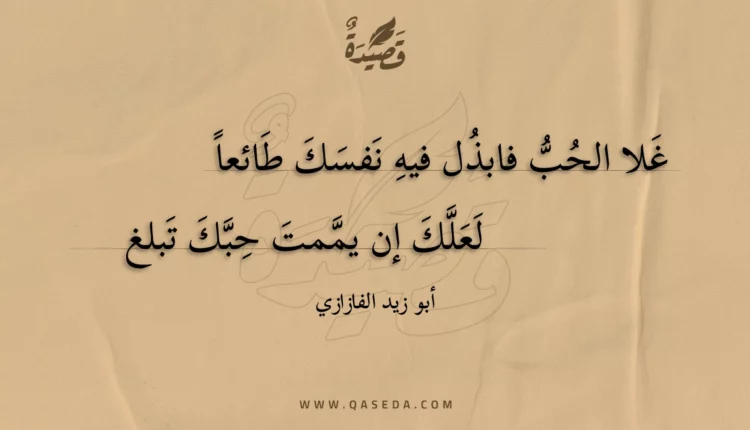 قَصِيدَةٌ
غَلا الحُبُّ فابذُل فيهِ نَفسَكَ طَائعاً
لَعَلَّكَ إن يمَّمتَ حِبَّكَ تَبلغ
أبو زيد الفازازي
WWW.QASEDA.COM